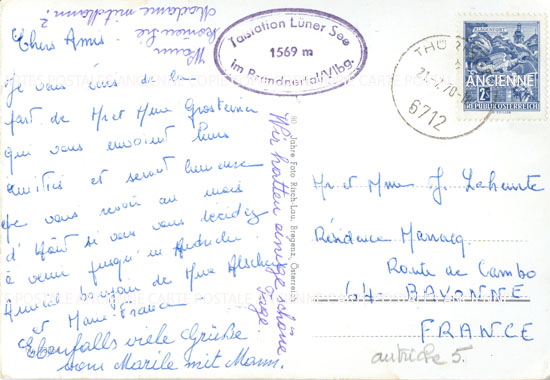 Wann
können Sie
Madame mitkommen?
Chers Amis.
Je vous écris de la
part de Mr et Mme
qui vous envoient leurs
amitiés et seront heureux
de vous revoir au mois
d'Août si vous vous décidez
à venir jusqu'en Autriche.
Amical bonjour de Mme
et Marie-France
Ebenfalls viele Grüße
von Marile mit Mann.
Wir hatten einige schöne
Tage.
Talstation Lüner See
1569 m
im Brandnertal/Vlbg.
Jahre Foto Risch Lau, Bregenz, Österreich
THÜ
70
6712
KLAGENFURT
2S
REPUBLIK ÖSTERREICH
ANCIENNE
CARTE POSTALE
Mr et Mme J.
Résidence
Route de Cambo
64 - BAYONNE
FRANCE
autriche 5.